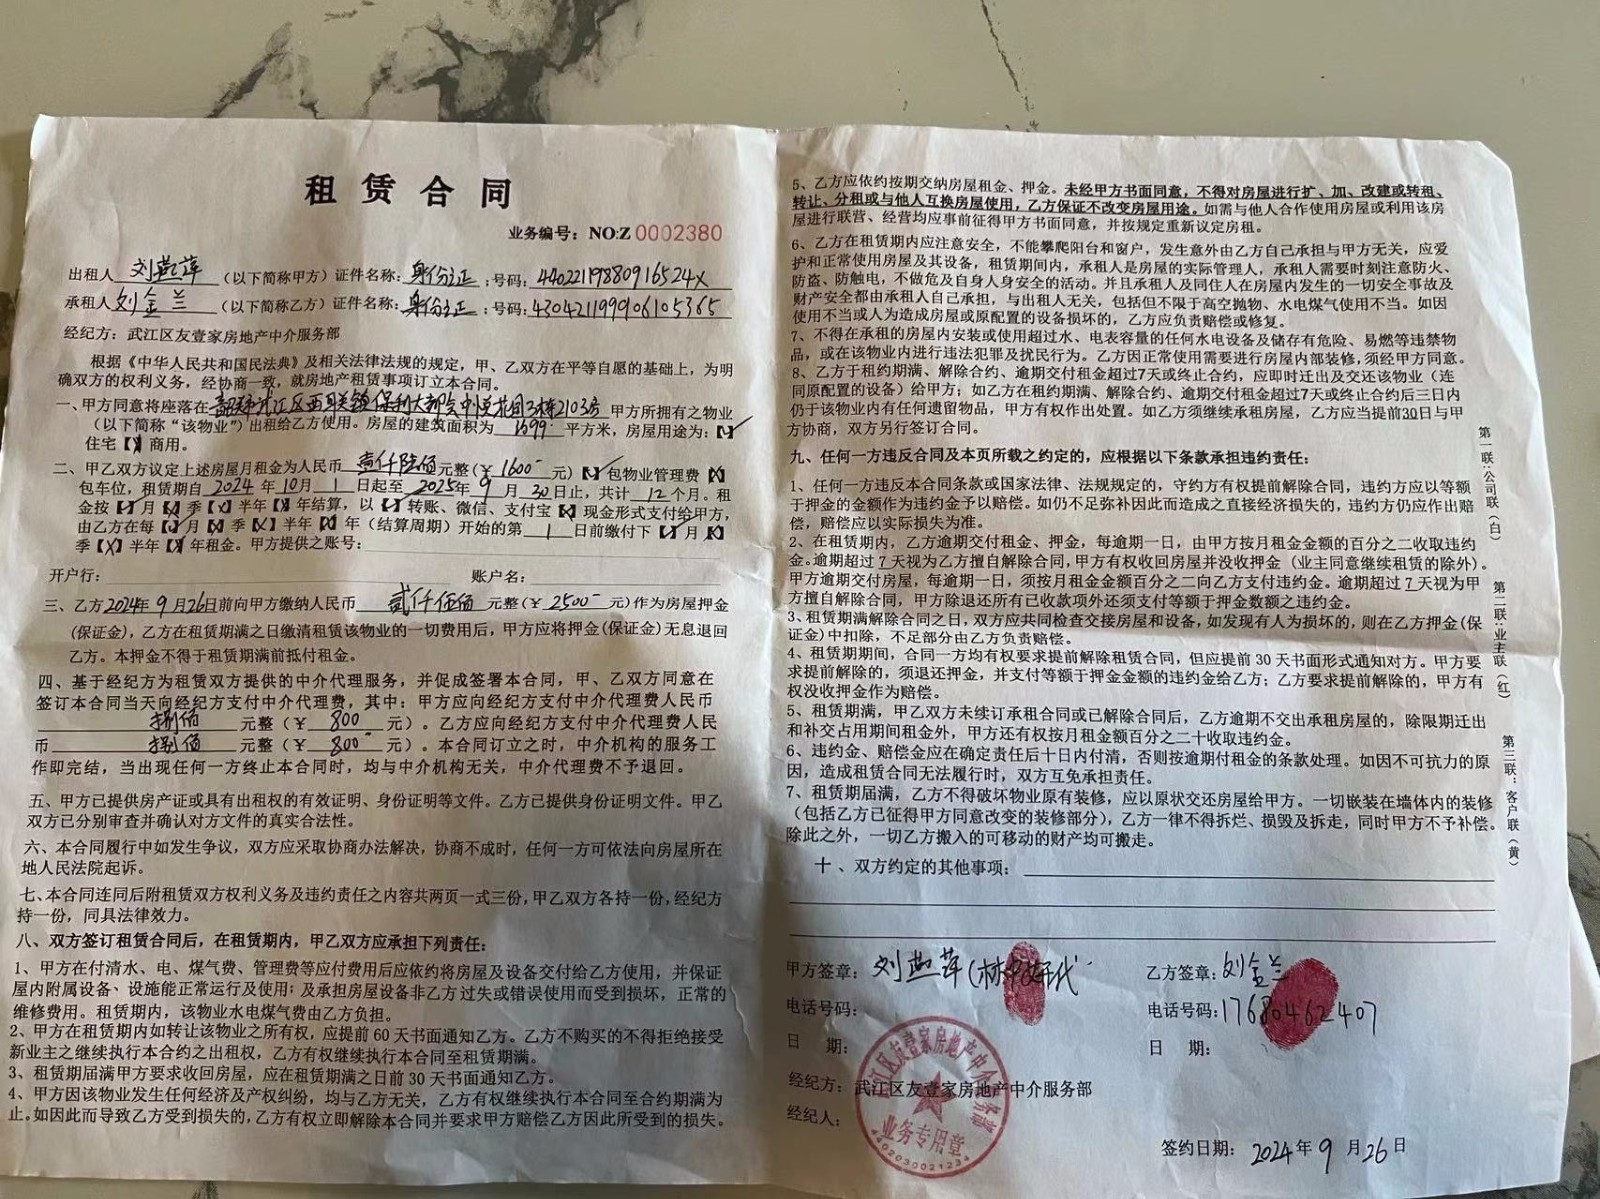 租赁合同
业务编号：NO:Z 0002380
出租人 刘燕萍 （以下简称甲方）证件名称：身份证 ；号码：44022119880916524X
承租人 刘金兰 （以下简称乙方）证件名称：身份证 ；号码：430421199906105365
经纪方：武江区友壹家房地产中介服务部
根据《中华人民共和国民法典》及相关法律法规的规定，甲、乙双方在平等自愿的基础上，为明
确双方的权利义务，经协商一致，就房地产租赁事项订立本合同。
一、甲方同意将座落在 韶关市武江区西联镇保利大都会中悦花园3栋2103房 甲方所拥有之物业
（以下简称“该物业”）出租给乙方使用。房屋的建筑面积为 平方米，房屋用途为：【✓】
住宅【X】商用。
二、甲乙双方议定上述房屋月租金为人民币 壹仟陆佰 元整（￥ 1600 元）【✓】包物业管理费【X】
包车位，租赁期自 2024 年 10 月 1 日起至 2025 年 9 月 30 日止，共计 12 个月。租
金按【✓】月【X】季【X】半年【X】年结算，以【✓】转账、微信、支付宝【X】现金形式支付给甲方，
由乙方在每【✓】月【X】季【X】半年【X】年（结算周期）开始的第 1 日前缴付下【✓】月【X】
季【X】半年【X】年租金。甲方提供之账号：
开户行： 账户名：
三、乙方 2024年9月26日 前向甲方缴纳人民币 贰仟伍佰 元整（￥ 2500 元）作为房屋押金
(保证金)，乙方在租赁期满之日缴清租赁该物业的一切费用后，甲方应将押金(保证金)无息退回
乙方。本押金不得于租赁期满前抵付租金。
四、基于经纪方为租赁双方提供的中介代理服务，并促成签署本合同，甲、乙双方同意在
签订本合同当天向经纪方支付中介代理费，其中：甲方应向经纪方支付中介代理费人民币
捌佰 元整（￥ 800 元）。乙方应向经纪方支付中介代理费人民
币 捌佰 元整（￥ 800 元）。本合同订立之时，中介机构的服务工
作即完结，当出现任何一方终止本合同时，均与中介机构无关，中介代理费不予退回。
五、甲方已提供房产证或具有出租权的有效证明、身份证明等文件。乙方已提供身份证明文件。甲乙
双方已分别审查并确认对方文件的真实合法性。
六、本合同履行中如发生争议，双方应采取协商办法解决，协商不成时，任何一方可依法向房屋所在
地人民法院起诉。
七、本合同连同后附租赁双方权利义务及违约责任之内容共两页一式三份，甲乙双方各持一份，经纪方
持一份，同具法律效力。
八、双方签订租赁合同后，在租赁期内，甲乙双方应承担下列责任：
1、甲方在付清水、电、煤气费、管理费等应付费用后应依约将房屋及设备交付给乙方使用，并保证
屋内附属设备、设施能正常运行及使用；及承担房屋设备非乙方过失或错误使用而受到损坏，正常的
维修费用。租赁期内，该物业水电煤气费由乙方负担。
2、甲方在租赁期内如转让该物业之所有权，应提前 60 天书面通知乙方。乙方不购买的不得拒绝接受
新业主之继续执行本合约之出租权，乙方有权继续执行本合同至租赁期满。
3、租赁期届满甲方要求收回房屋，应在租赁期满之日前 30 天书面通知乙方。
4、甲方因该物业发生任何经济及产权纠纷，均与乙方无关，乙方有权继续执行本合同至合约期满为
止。如因此而导致乙方受到损失的，乙方有权立即解除本合同并要求甲方赔偿乙方因此所受到的损失。
5、乙方应依约按期交纳房屋租金、押金。未经甲方书面同意，不得对房屋进行扩、加、改建或转租、
转让、分租或与他人互换房屋使用，乙方保证不改变房屋用途。如需与他人合作使用房屋或利用该房
屋进行联营、经营均应事前征得甲方书面同意，并按规定重新议定房租。
6、乙方在租赁期内应注意安全，不能攀爬阳台和窗户，发生意外由乙方自己承担与甲方无关，应爱
护和正常使用房屋及其设备，租赁期间内，承租人是房屋的实际管理人，承租人需要时刻注意防火、
防盗、防触电，不做危及自身人身安全的活动。并且承租人及同住人在房屋内发生的一切安全事故及
财产安全都由承租人自己承担，与出租人无关，包括但不限于高空抛物、水电煤气使用不当。如因
使用不当或人为造成房屋或原配置的设备损坏的，乙方应负责赔偿或修复。
7、不得在承租的房屋内安装或使用超过水、电表容量的任何水电设备及储存有危险、易燃等违禁物
品，或在该物业内进行违法犯罪及扰民行为。乙方因正常使用需要进行房屋内部装修，须经甲方同意。
8、乙方于租约期满、解除合约、逾期交付租金超过7天或终止合约，应即时迁出及交还该物业（连
同原配置的设备）给甲方；如乙方在租约期满、解除合约、逾期交付租金超过7天或终止合约后三日内
仍于该物业内有任何遗留物品，甲方有权作出处置。如乙方须继续承租房屋，乙方应当提前30日与甲
方协商，双方另行签订合同。
九、任何一方违反合同及本页所载之约定的，应根据以下条款承担违约责任：
1、任何一方违反本合同条款或国家法律、法规规定的，守约方有权提前解除合同，违约方应以等额
于押金的金额作为违约金予以赔偿。如仍不足弥补因此而造成之直接经济损失的，违约方仍应作出赔
偿，赔偿应以实际损失为准。
2、在租赁期内，乙方逾期交付租金、押金，每逾期一日，由甲方按月租金金额的百分之二收取违约
金。逾期超过 7 天视为乙方擅自解除合同，甲方有权收回房屋并没收押金（业主同意继续租赁的除外）。
甲方逾期交付房屋，每逾期一日，须按月租金金额百分之二向乙方支付违约金。逾期超过 7 天视为甲
方擅自解除合同，甲方除退还所有已收款项外还须支付等额于押金数额之违约金。
3、租赁期满解除合同之日，双方应共同检查交接房屋和设备，如发现有人为损坏的，则在乙方押金(保
证金)中扣除，不足部分由乙方负责赔偿。
4、租赁期期间，合同一方均有权要求提前解除租赁合同，但应提前 30 天书面形式通知对方。甲方要
求提前解除的，须退还押金，并支付等额于押金金额的违约金给乙方；乙方要求提前解除的，甲方有
权没收押金作为赔偿。
5、租赁期满，甲乙双方未续订承租合同或已解除合同后，乙方逾期不交出承租房屋的，除限期迁出
和补交占用期间租金外，甲方还有权按月租金额百分之二十收取违约金。
6、违约金、赔偿金应在确定责任后十日内付清，否则按逾期付租金的条款处理。如因不可抗力的原
因，造成租赁合同无法履行时，双方互免承担责任。
7、租赁期届满，乙方不得破坏物业原有装修，应以原状交还房屋给甲方。一切嵌装在墙体内的装修
（包括乙方已征得甲方同意改变的装修部分），乙方一律不得拆烂、损毁及拆走，同时甲方不予补偿。
除此之外，一切乙方搬入的可移动的财产均可搬走。
十、双方约定的其他事项：
甲方签章：刘燕萍（林 代
乙方签章：刘金兰
电话号码：
电话号码：17680462407
日 期：
日 期：
经纪方：武江区友壹家房地产中介服务部
经纪人：
签约日期：2024年9月26日
武江区友壹家房地产中介服务部
业务专用章
4402030021234
第一联：公司联（白）
第二联：业主联（红）
第三联：客户联（黄）